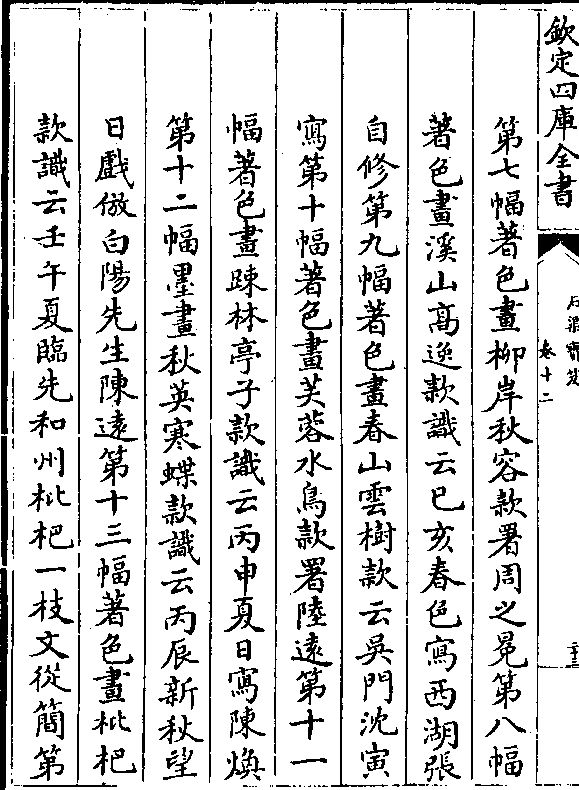 欽定四庫全書
卷十二
第七幅著色畫柳岸秋容款署周之冕第八幅
著色畫溪山髙逸款識云己亥春色寫西湖張
自修第九幅著色畫春山雲樹款云吳門沈寅
寫第十幅著色畫芙蓉水鳥款署陸遠第十一
幅著色畫踈林亭子款識云丙申夏日寫陳煥
第十二幅墨畫秋英寒蝶款識云丙辰新秋望
日戲倣白陽先生陳遠第十三幅著色畫枇杷
款識云壬午夏臨先和州枇杷一枝文從簡第